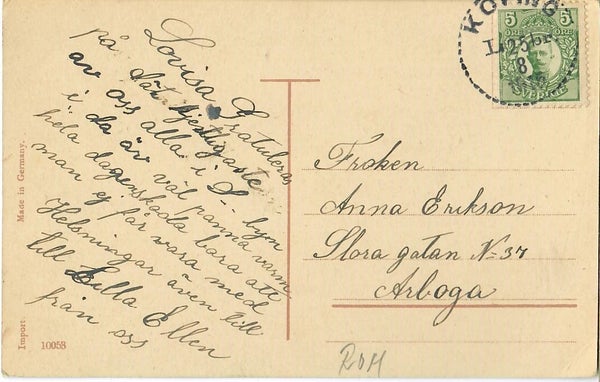 Lovisa Gratuleras
på det hjertligaste
av oss alla i L byn
i da är väl panna varm
hela dagen skada bara att
man ej får vara med
Helsningar även till
till Lilla Ellen
från oss
Made in Germany.
Import. 10058
KÖPING
25
8
5 5
ÖRE ÖRE
SVERIGE
Fröken
Anna Erikson
Stora gatan No 37
Arboga